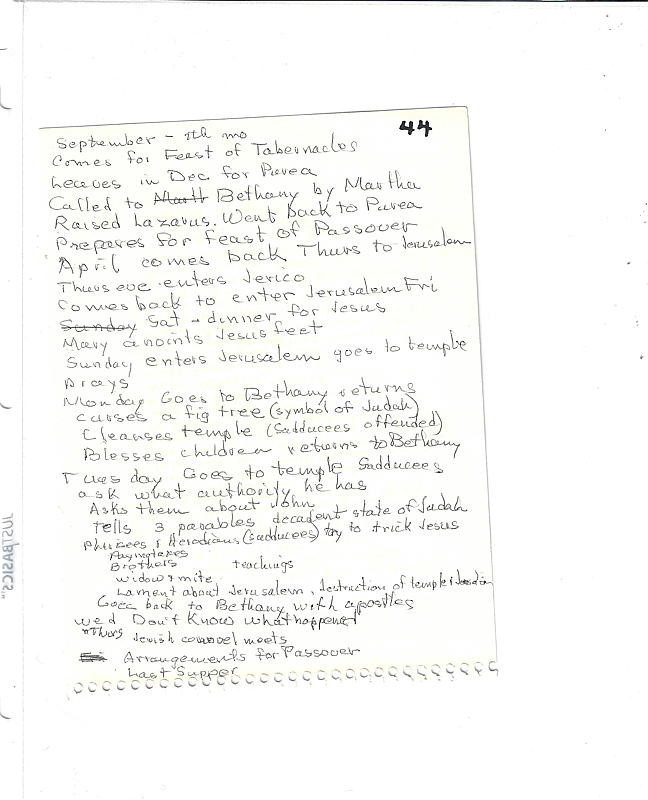 44
September - 7th mo
Comes for Feast of Tabernacles
Leaves in Dec. for Perea
Called to Bethany by Martha
Raised Lazarus. Went back to Perea
Prepares for feast of Passover
April comes back Thurs to Jerusalem
Thurs eve enters Jerico
Comes back to enter Jerusalem Fri
Sunday Sat - dinner for Jesus
Mary anoints Jesus feet
Sunday enters Jerusalem goes to temple
Prays
Monday Goes to Bethany returns
curses a fig tree (symbol of Judah)
Cleanses temple (Sadducees offended)
Blesses children returns to Bethany
Tues day Goes to temple Sadducees
ask what authority he has
Asks them about John
tells 3 parables decadent state of Judah
& Herodians (sadducees) try to trick Jesus
Paying taxes
Brothers teachings
widow's mite
Lament about Jerusalem, destruction of temple &
Goes back to Bethany with apostles
Wed Don't Know what happened
Thurs Jewish council meets
Arrangements for Passover
Last Supper
JUSTBASICS